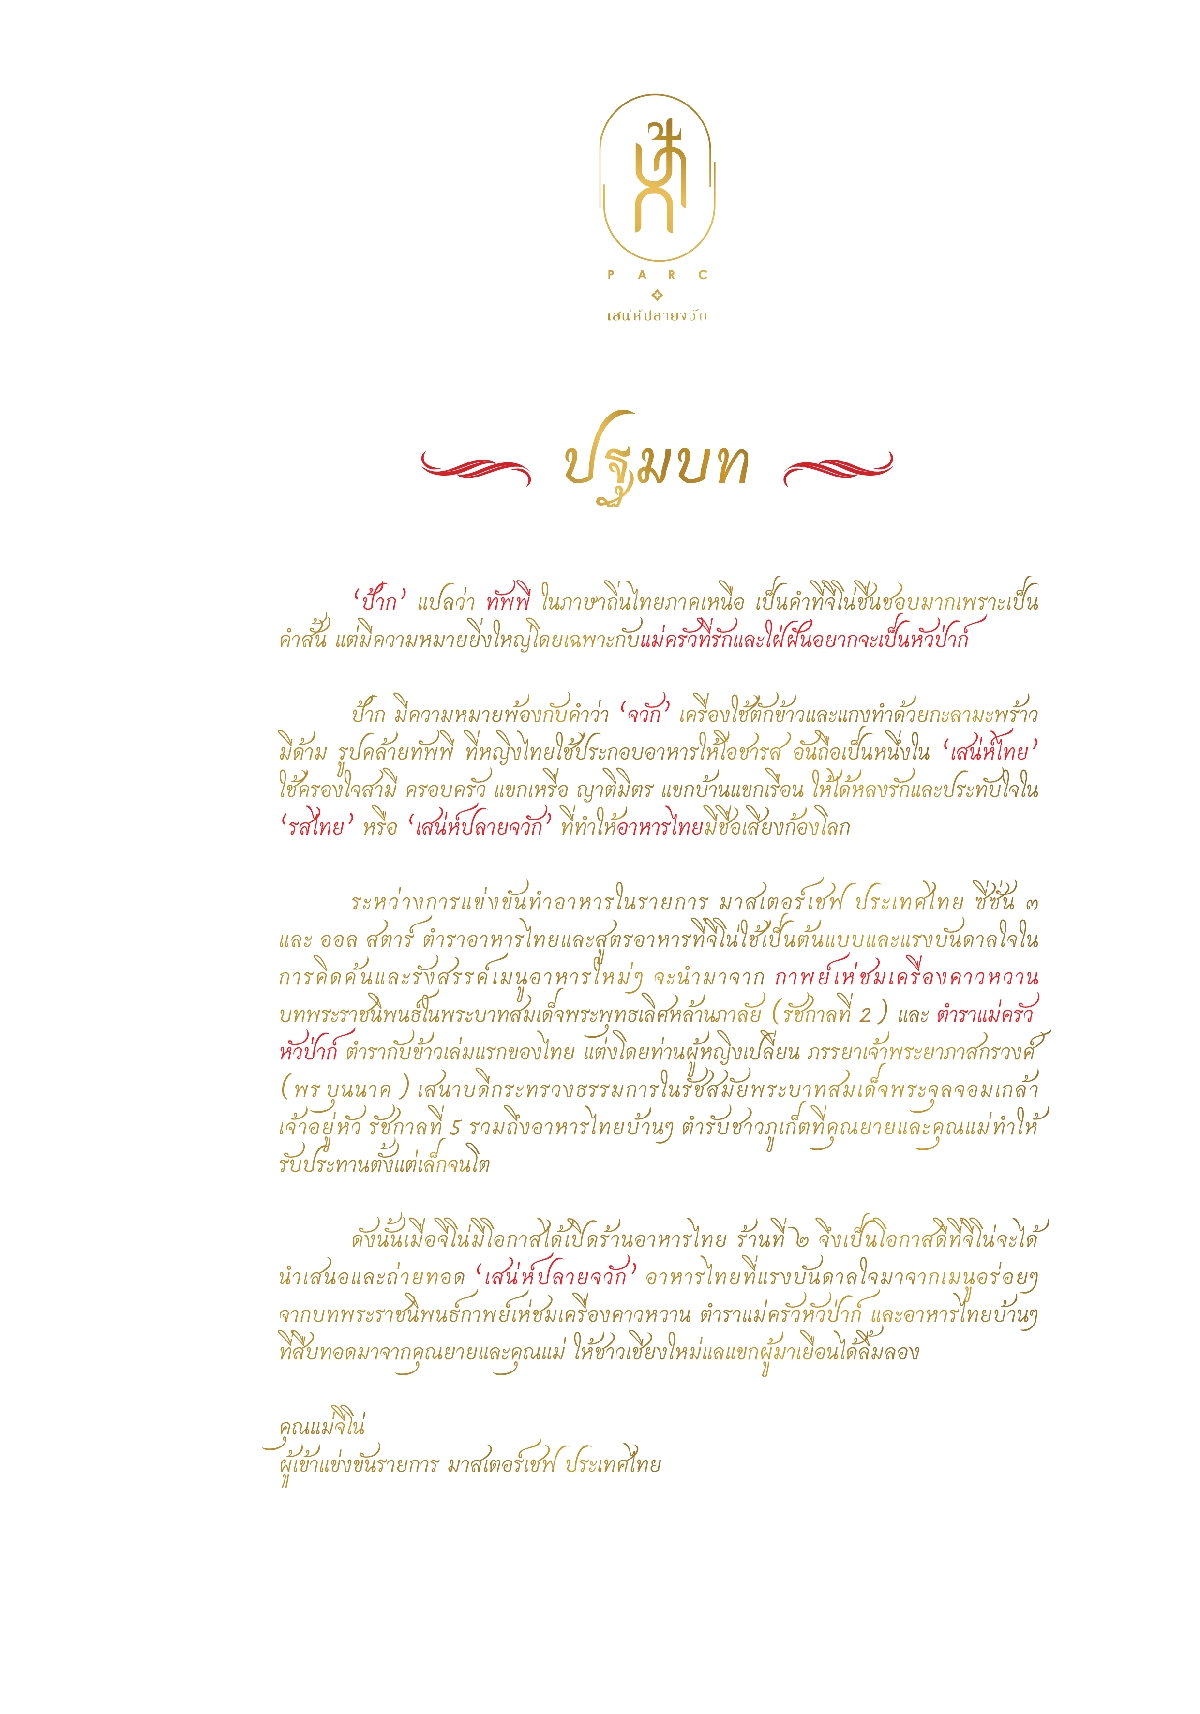 ป๊าก
PARC
เสน่ห์ปลายจวัก
ปฐมบท
‘ป๊าก’ แปลว่า ทัพพี ในภาษาถิ่นไทยภาคเหนือ เป็นคำที่จีโน่ชื่นชอบมากเพราะเป็น
คำสั้น แต่มีความหมายยิ่งใหญ่โดยเฉพาะกับแม่ครัวที่รักและใฝ่ฝันอยากจะเป็นหัวป่าก์
ป๊าก มีความหมายพ้องกับคำว่า ‘จวัก’ เครื่องใช้ตักข้าวและแกงทำด้วยกะลามะพร้าว
มีด้าม รูปคล้ายทัพพี ที่หญิงไทยใช้ประกอบอาหารให้โอชารส อันถือเป็นหนึ่งใน ‘เสน่ห์ไทย’
ใช้ครองใจสามี ครอบครัว แขกเหรื่อ ญาติมิตร แขกบ้านแขกเรือน ให้ได้หลงรักและประทับใจใน
‘รสไทย’ หรือ ‘เสน่ห์ปลายจวัก’ ที่ทำให้อาหารไทยมีชื่อเสียงก้องโลก
ระหว่างการแข่งขันทำอาหารในรายการ มาสเตอร์เชฟ ประเทศไทย ซีซั่น ๓
และ ออล สตาร์ ตำราอาหารไทยและสูตรอาหารที่จีโน่ใช้เป็นต้นแบบและแรงบันดาลใจใน
การคิดค้นและรังสรรค์เมนูอาหารใหม่ๆ จะนำมาจาก กาพย์เห่ชมเครื่องคาวหวาน
บทพระราชนิพนธ์ในพระบาทสมเด็จพระพุทธเลิศหล้านภาลัย (รัชกาลที่ 2 ) และ ตำราแม่ครัว
หัวป่าก์ ตำรากับข้าวเล่มแรกของไทย แต่งโดยท่านผู้หญิงเปลี่ยน ภรรยาเจ้าพระยาภาสกรวงศ์
(พร บุนนาค ) เสนาบดีกระทรวงธรรมการในรัชสมัยพระบาทสมเด็จพระจุลจอมเกล้า
เจ้าอยู่หัว รัชกาลที่ 5 รวมถึงอาหารไทยบ้านๆ ตำรับชาวภูเก็ตที่คุณยายและคุณแม่ทำให้
รับประทานตั้งแต่เล็กจนโต
ดังนั้นเมื่อจีโน่มีโอกาสได้เปิดร้านอาหารไทย ร้านที่ ๒ จึงเป็นโอกาสดีที่จีโน่จะได้
นำเสนอและถ่ายทอด ‘เสน่ห์ปลายจวัก’ อาหารไทยที่แรงบันดาลใจมาจากเมนูอร่อยๆ
จากบทพระราชนิพนธ์กาพย์เห่ชมเครื่องคาวหวาน ตำราแม่ครัวหัวป่าก์ และอาหารไทยบ้านๆ
ที่สืบทอดมาจากคุณยายและคุณแม่ ให้ชาวเชียงใหม่แลแขกผู้มาเยือนได้ลิ้มลอง
คุณแม่จีโน่
ผู้เข้าแข่งขันรายการ มาสเตอร์เชฟ ประเทศไทย